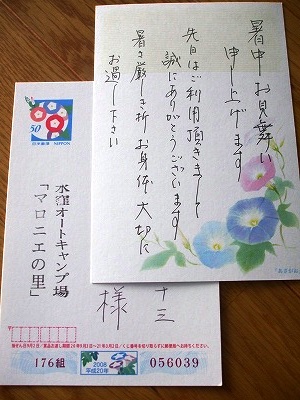 暑中お見舞い
申し上げます
先日はご利用頂きまして
誠にありがとうございます
暑さ厳しき折お身体大切に
お過し下さい
50
日本郵便 NIPPON
十三
様
水窪オートキャンプ場
「マロニエの里」
176組
2008
平成20年
056039